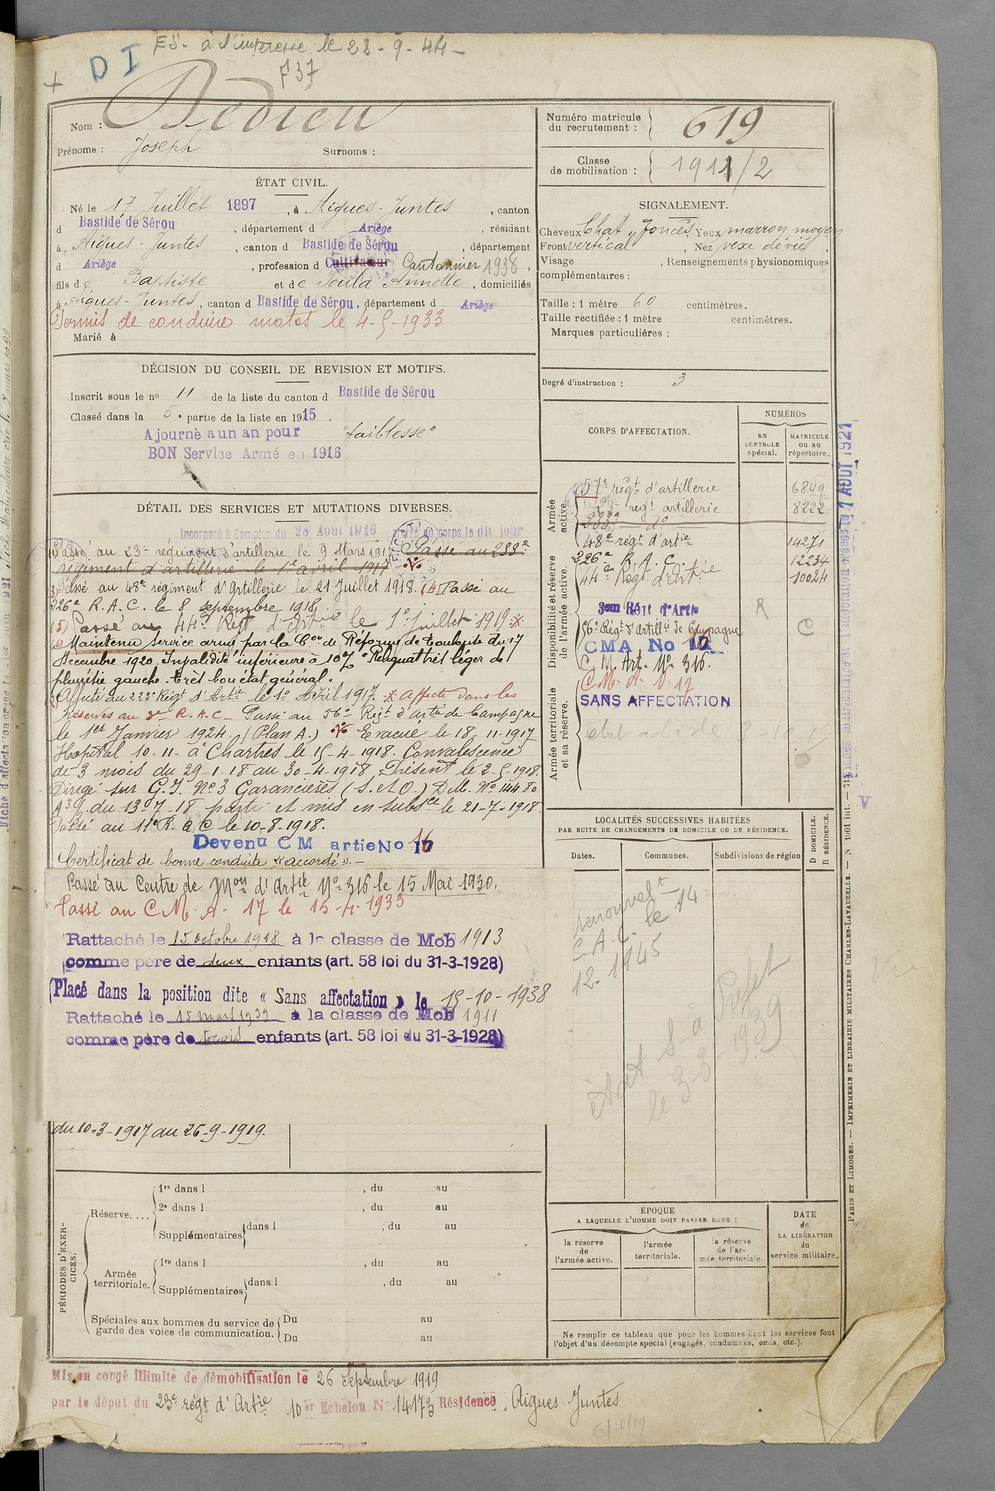 DI
ES. à l'interessé le 28-9-44
F37
Nom : Dedieu
Prénoms : Joseph
Surnoms :
Numéro matricule du recrutement : 619
Classe de mobilisation : 1911/2
ÉTAT CIVIL.
Né le 17 Juillet 1897, à Aigues-Juntes, canton
d Bastide de Sérou, département d Ariège, résidant
à Aigues-Juntes, canton d Bastide de Sérou, département
d Ariège, profession d Cultivateur Cantonnier 1938,
fils de Baptiste et de Soula Annette, domiciliés
à Aigues-Juntes, canton d Bastide de Sérou, département d Ariège
Permis de conduire motos le 4-5-1933
Marié à
SIGNALEMENT.
Cheveux Chat. foncés Yeux marron moyen
Front vertical, Nez vexe dévié,
Visage , Renseignements physionomiques
complémentaires :
Taille : 1 mètre 60 centimètres.
Taille rectifiée : 1 mètre centimètres.
Marques particulières :
Degré d'instruction : 3
DÉCISION DU CONSEIL DE REVISION ET MOTIFS.
Inscrit sous le no 11 de la liste du canton d Bastide de Sérou
Classé dans la 5e partie de la liste en 1915.
Ajourné a un an pour "faiblesse"
BON Service Armé en 1916
DÉTAIL DES SERVICES ET MUTATIONS DIVERSES.
Incorporé à Compter du 28 Août 1916 arrivé au corps le dit jour
Passé au 23e regiment d'artillerie le 9 Mars 1917 Passé au 233e
regiment d'artillerie le 1er avril 1917
Passé au 48e régiment d'Artillerie le 21 Juillet 1918. (4) Passé au
226e R.A.C. le 8 septembre 1918
(5) Passé au 44e Regt d'Artie le 1er juillet 1919
Maintenu service armé par la Con de Réforme de Toulouse du 17
Decembre 1920. Invalidité inférieure à 10% Reliquat très léger de
pleurésie gauche. Très bon état général.
Affecté au 223e Régt d'Artie le 1er Avril 1917. Affecté dans les
réserves au 3e R.A.C. Passé au 56e Régt d'artie de Campagne
le 1er Janvier 1924. (Plan A.) Evacué le 18-11-1917
Hopital 10-11- à Chartres le 15-4-1918. Convalescence
de 3 mois du 29-1-18 au 30-4-1918, Présent le 2-5-1918.
Dirigé sur G.I. No 3 Garancières (S. et O.) D.M. No 14480
du 13-7-18 parti et mis en subsce le 21-7-1918
Passé au 11e R.A.C le 10-8-1918.
Devenu CM artie No 16
Certificat de bonne conduite "accordé".
Passé au Centre de Mon d'artie No 316 le 15 Mai 1930.
Passé au C.M.A. 17 le 15-4-1933
Rattaché le 15 octobre 1938 à la classe de Mob 1913
comme père de deux enfants (art. 58 loi du 31-3-1928)
Placé dans la position dite « Sans affectation » le 15-10-1938
Rattaché le 15 mars 1939 à la classe de Mob 1911
comme père de trois enfants (art. 58 loi du 31-3-1928)
du 10-3-1917 au 26-9-1919.
CORPS D'AFFECTATION.
NUMÉROS
AU CONTROLE spécial.
MATRICULE ou au répertoire.
Armée active.
57e régt d'artillerie 6849
23e regt artillerie 8222
233e do
48e régt d'artie 14271
Disponibilité et réserve de l'armée active.
226e R.A.C. 12234
44e Regt d'Artie 10024
3em Rgit d'Artie R
56e Régt d'Artillie de Campagne C
CMA No 16
C.M. Art. No 316.
Armée territoriale et sa réserve.
C.M.A. No 17
SANS AFFECTATION
LOCALITÉS SUCCESSIVES HABITÉES
PAR SUITE DE CHANGEMENTS DE DOMICILE OU DE RÉSIDENCE.
Dates.
Communes.
Subdivisions de région
D DOMICILE.
R RÉSIDENCE.
le 14
12-1945
le 3-3-1939
PÉRIODES D'EXERCICES.
Réserve....
1re dans l , du au
2e dans l , du au
Supplémentaires dans l , du au
Armée territoriale.
1re dans l , du au
Supplémentaires dans l , du au
Spéciales aux hommes du service de garde des voies de communication.
Du au
Du au
ÉPOQUE
A LAQUELLE L'HOMME DOIT PASSER DANS :
la réserve de l'armée active.
l'armée territoriale.
la réserve de l'armée territoriale.
DATE de LA LIBÉRATION du service militaire.
Ne remplir ce tableau que pour les hommes dont les services font
l'objet d'un décompte spécial (engagés, condamnés, omis, etc.).
Mis en congé illimité de démobilisation le 26 Septembre 1919
par le dépot du 23e régt d'Artie 10er Echelon No 14173 Résidence, Aigues-Juntes
PARIS ET LIMOGES. — IMPRIMERIE ET LIBRAIRIE MILITAIRES CHARLES-LAVAUZELLE.
7 AOUT 1921
V